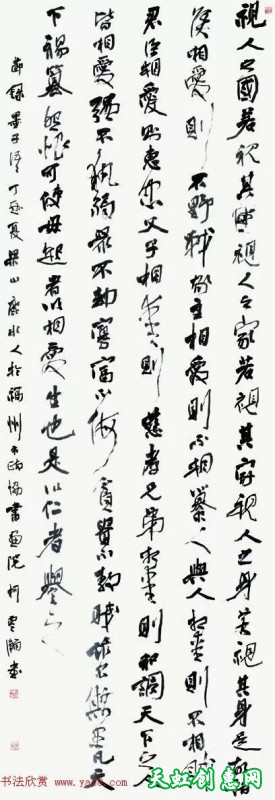 視人之國若視其國視人之家若視其家視人之身若視其身是故諸
侯相愛則不野戰家主相愛則不相篡人與人相愛則不相賊
君臣相愛則惠忠父子相愛則慈孝兄弟相愛則和調天下之人
皆相愛強不執弱眾不劫寡富不侮貧貴不敖賤詐不欺愚凡天
下禍篡怨恨可使毋起者以相愛生也是以仁者譽之
節錄墨子語丁亥夏梁山人於福州市政協書畫院
书法欣赏
天虹创意网